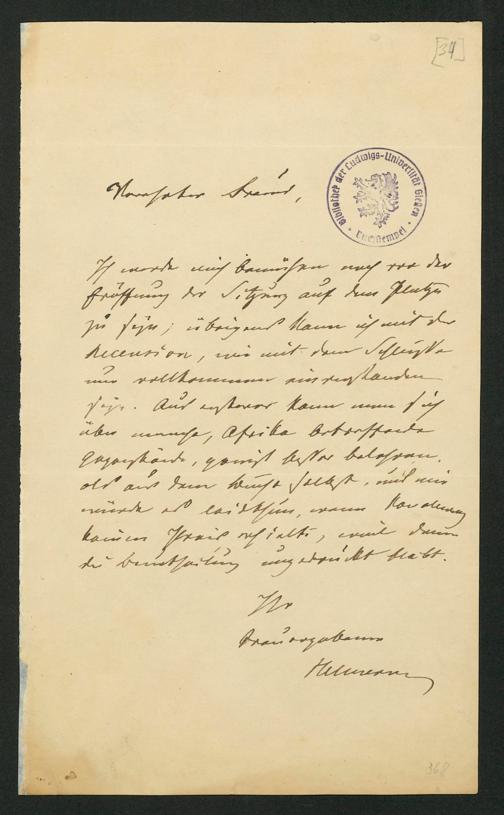 [34]
Bibliothek der Ludwigs-Universität Giessen
Verehrter Freund,
Ich werde mich bemühen noch vor der
Eröffnung der Sitzung auf dem Platze
zu sein; übrigens kann ich mit der
Recension, wie mit dem Schlusse
nur vollkommen einverstanden
sein. Aus ersterer kann man sich
über manche, Afrika betreffende
Gegenstände, gewiß besser belehren,
als aus dem Buche selbst, und mir
würde es leidthun, wenn
keinen Preis erhielte, weil dann
die Beurtheilung ungedruckt bleibt.
Ihr
treuergebener
368